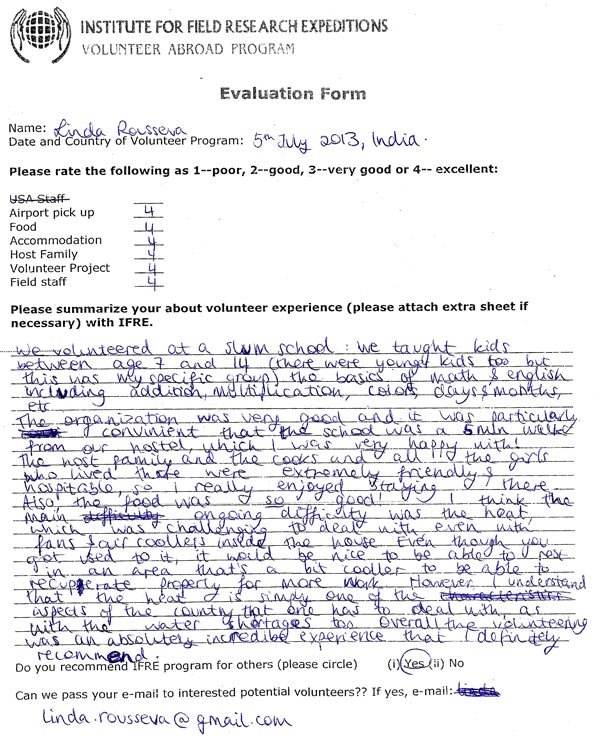 INSTITUTE FOR FIELD RESEARCH EXPEDITIONS
VOLUNTEER ABROAD PROGRAM
Evaluation Form
Name: Linda Rousseva
Date and Country of Volunteer Program: 5th July 2013, India.
Please rate the following as 1--poor, 2--good, 3--very good or 4-- excellent:
USA Staff
Airport pick up 4
Food 4
Accommodation 4
Host Family 4
Volunteer Project 4
Field staff 4
Please summarize your about volunteer experience (please attach extra sheet if
necessary) with IFRE.
We volunteered at a slum school : we taught kids
between age 7 and 14 (there were young kids too but
this was my specific group) the basics of math & english
including addition, multiplication, colors, days & months,
etc
The organization was very good and it was particularly
convinient that the school was a 5 min walk
from our hostel, which I was very happy with!
The host family and the cooks and all the girls
who lived there were extremely friendly &
hospitable, so I really enjoyed staying there.
Also! the food was so good! I think the
main difficulty ongoing difficulty was the heat
which was challenging to deal with even with
fans & air coollers inside the house Even though you
get used to it, it would be nice to be able to rest
in an area that's a bit cooler to be able to
recuperate properly for more work. However I understand
that the heat is simply one of the characteristics
aspects of the country that one has to deal with, as
with the water shortages too. Overall the volunteering
was an absolutely incredibe experience that I definitely
recommend.
Do you recommend IFRE program for others (please circle) (i) Yes (ii) No
Can we pass your e-mail to interested potential volunteers?? If yes, e-mail: Linda
linda.rousseva@gmail.com